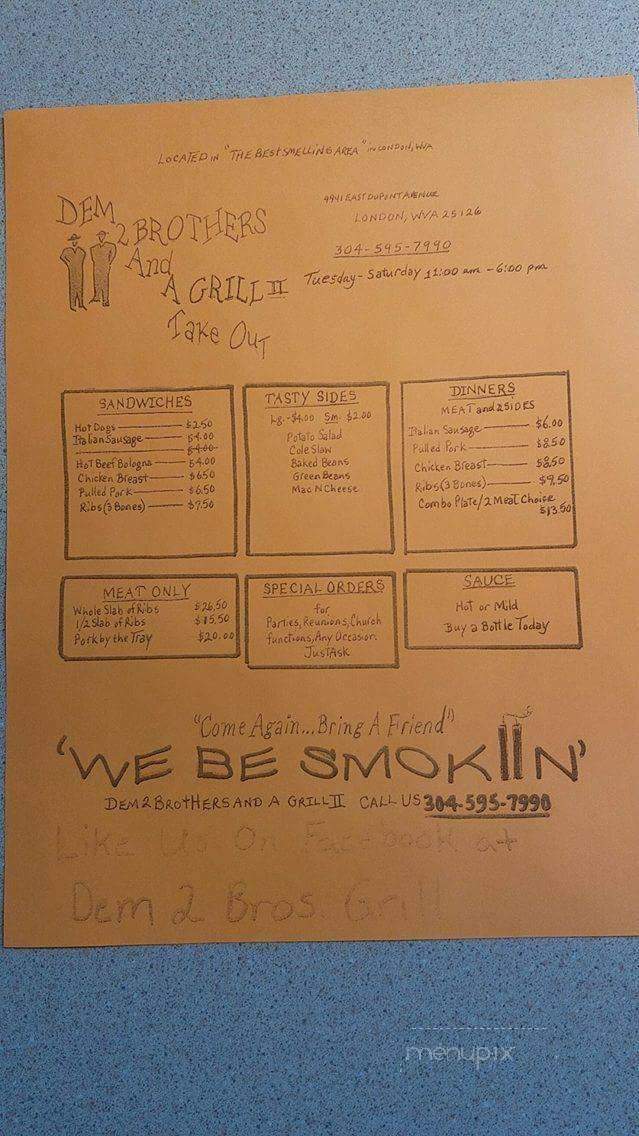 LOCATED IN "THE BEST SMELLING AREA" IN LONDON, WVA
DEM
2 BROTHERS
And
A GRILL II
Take Out
4941 EAST DUPONT AVENUE
LONDON, WVA 25126
304-595-7990
Tuesday - Saturday 11:00 am - 6:00 pm
SANDWICHES
Hot Dogs $2.50
Italian Sausage $4.00
Hot Beef Bologna $4.00
Chicken Breast $6.50
Pulled Pork $6.50
Ribs (3 Bones) $7.50
TASTY SIDES
Lg. - $4.00 Sm. $2.00
Potato Salad
Cole Slaw
Baked Beans
Green Beans
Mac N Cheese
DINNERS
MEAT and 2 SIDES
Italian Sausage $6.00
Pulled Pork $8.50
Chicken Breast $8.50
Ribs (3 Bones) $9.50
Combo Plate/2 Meat Choice
$13.50
MEAT ONLY
Whole Slab of Ribs $26.50
1/2 Slab of Ribs $15.50
Pork by the Tray $20.00
SPECIAL ORDERS
for
Parties, Reunions, Church
functions, Any Occasion.
Just Ask
SAUCE
Hot or Mild
Buy a Bottle Today
"Come Again... Bring A Friend"
'WE BE SMOKIIN'
DEM 2 BROTHERS AND A GRILL II CALL US 304-595-7990
Like Us On Facebook at
Dem 2 Bros. Grill
menupix